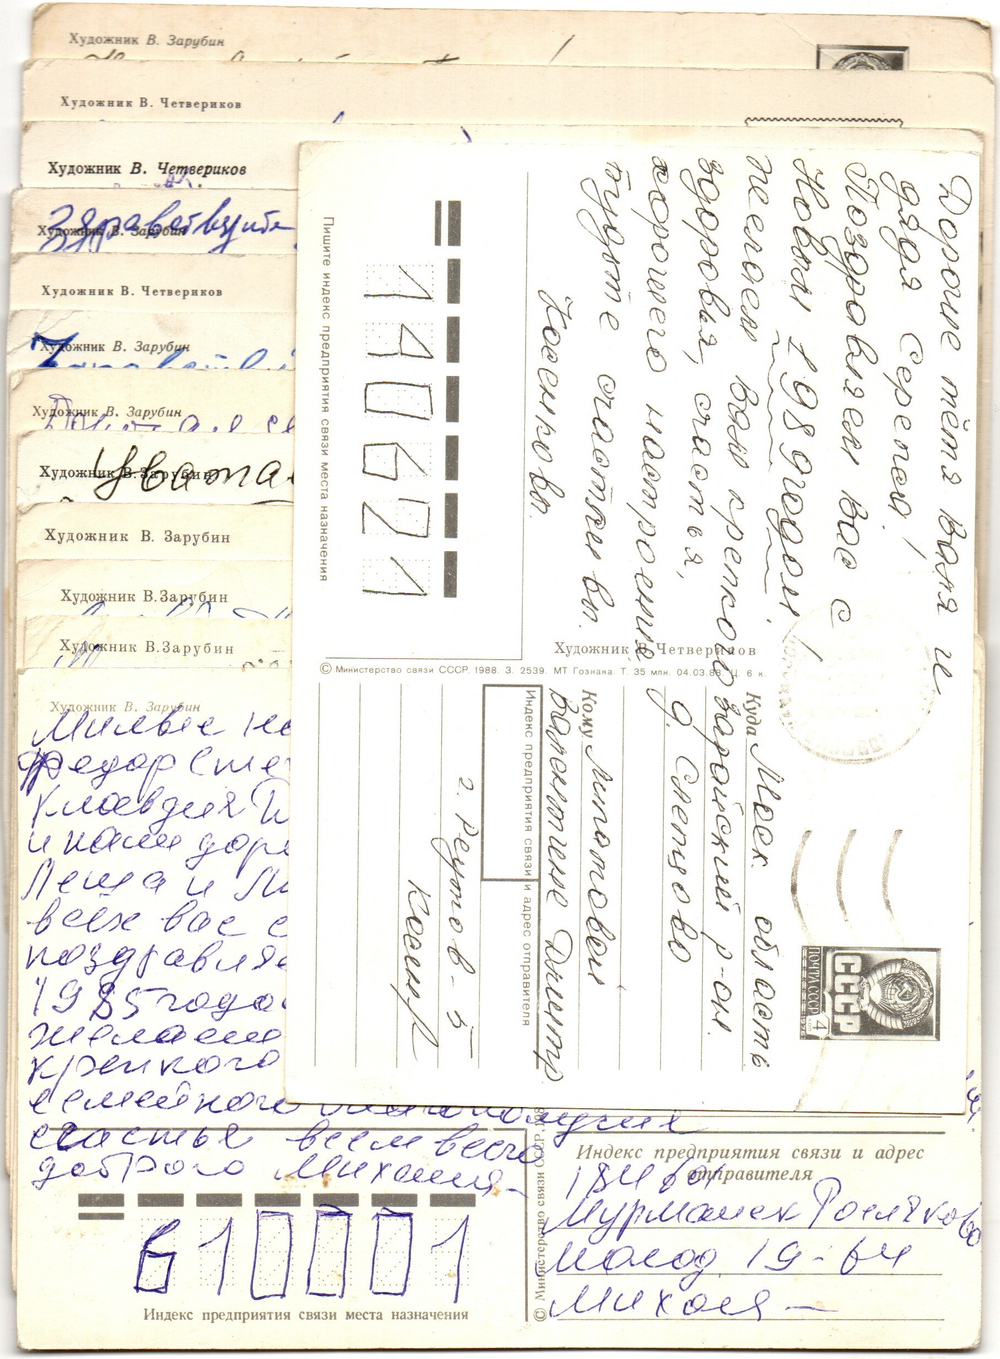 Художник В. Зарубин
Художник В. Четвериков
Художник В. Четвериков
Здравствуйте
Художник В. Зарубин
Художник В. Четвериков
Художник В. Зарубин
Художник В. Зарубин
Художник В. Зарубин
Художник В. Зарубин
Художник В.Зарубин
Художник В.Зарубин
Художник В. Зарубин
Милые
Федор
Клавдия
и наши
Леша и
всех вас с
поздравля
1985 года
желаем
крепкого
семейного благополучия
счастья всем всего
доброго Михаил
610001
Индекс предприятия связи места назначения
© Министерство связи СССР, 198
Индекс предприятия связи и адрес отправителя
Мурманск Росляково
Молод. 19-64
Дорогие тётя Валя и
дядя Серёжа!
Поздравляем вас с
Новым 1989 годом!
Желаем вам крепкого
здоровья, счастья,
хорошего настроение
будьте счастливы.
Косенковы.
140621
Пишите индекс предприятия связи места назначения
Художник В. Четвериков
© Министерство связи СССР. 1988. З. 2539. МТ Гознака. Т. 35 млн. 04.03.88. Ц. 6 к.
Куда Моск. область
Зарайский р-он.
д. Слепцово
Кому Липатовой
Валентине Дмитр
Индекс предприятия связи и адрес отправителя
г. Реутов-5
ПОЧТА СССР
4
СССР